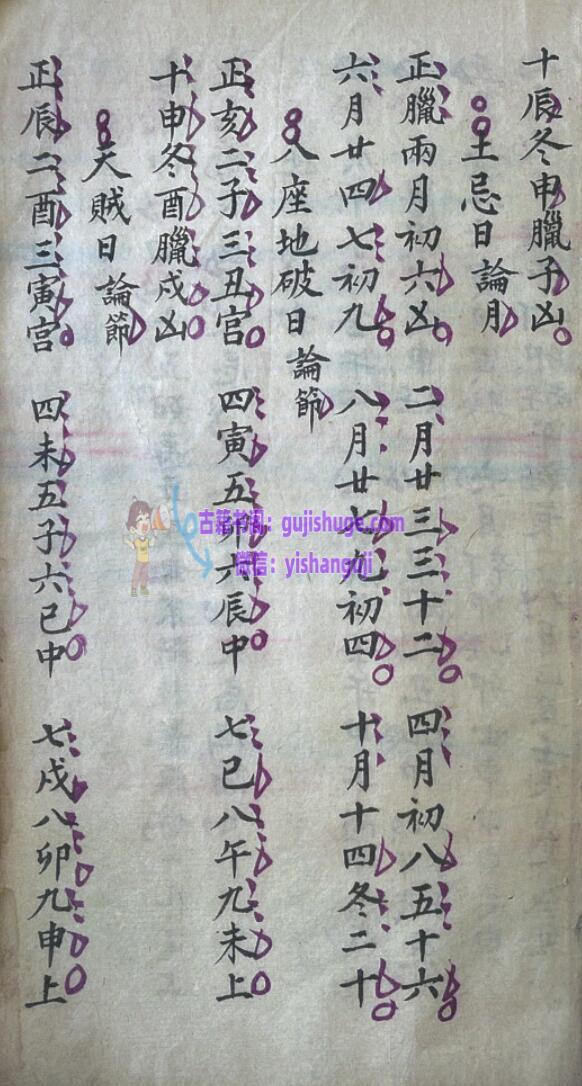 十辰冬申臘子凶
土忌日論月
正臘兩月初六凶 二月廿三三十二 四月初八五十六
六月廿四七初九 八月廿七九初四 十月十四冬二十
八座地破日論節
正亥二子三丑宫 四寅五卯六辰中 七巳八午九未上
十申冬酉臘戌凶
天賊日論節
正辰二酉三寅宫 四未五子六巳中 七戌八卯九申上
古籍书阁:gujishuge.com
微信:yishanguji